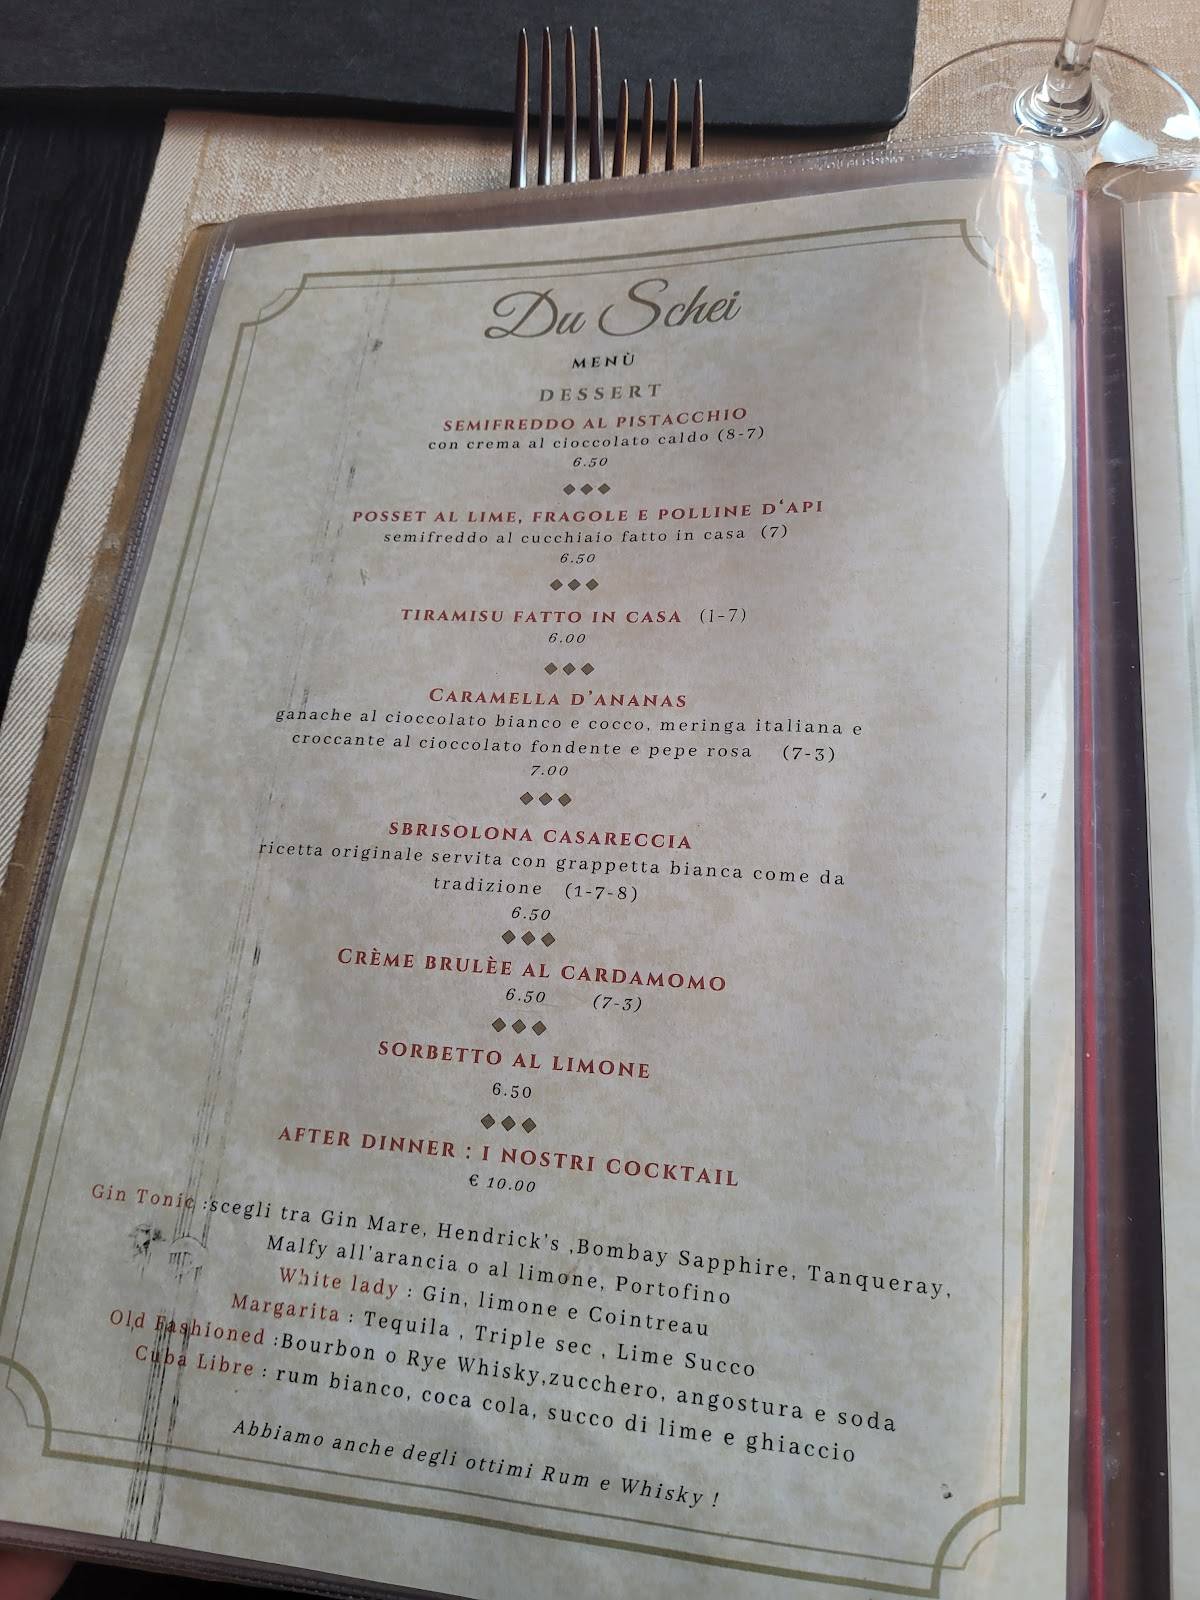 Du Schei
MENÙ
DESSERT
SEMIFREDDO AL PISTACCHIO
con crema al cioccolato caldo (8-7)
6.50
POSSET AL LIME, FRAGOLE E POLLINE D'API
semifreddo al cucchiaio fatto in casa (7)
6.50
TIRAMISU FATTO IN CASA (1-7)
6.00
CARAMELLA D'ANANAS
ganache al cioccolato bianco e cocco, meringa italiana e
croccante al cioccolato fondente e pepe rosa (7-3)
7.00
SBRISOLONA CASARECCIA
ricetta originale servita con grappetta bianca come da
tradizione (1-7-8)
6.50
CRÈME BRULÈE AL CARDAMOMO
6.50 (7-3)
SORBETTO AL LIMONE
6.50
AFTER DINNER : I NOSTRI COCKTAIL
€ 10.00
Gin Tonic :scegli tra Gin Mare, Hendrick's ,Bombay Sapphire, Tanqueray,
Malfy all'arancia o al limone, Portofino
White lady : Gin, limone e Cointreau
Margarita : Tequila , Triple sec , Lime Succo
Old Fashioned :Bourbon o Rye Whisky,zucchero, angostura e soda
Cuba Libre : rum bianco, coca cola, succo di lime e ghiaccio
Abbiamo anche degli ottimi Rum e Whisky !